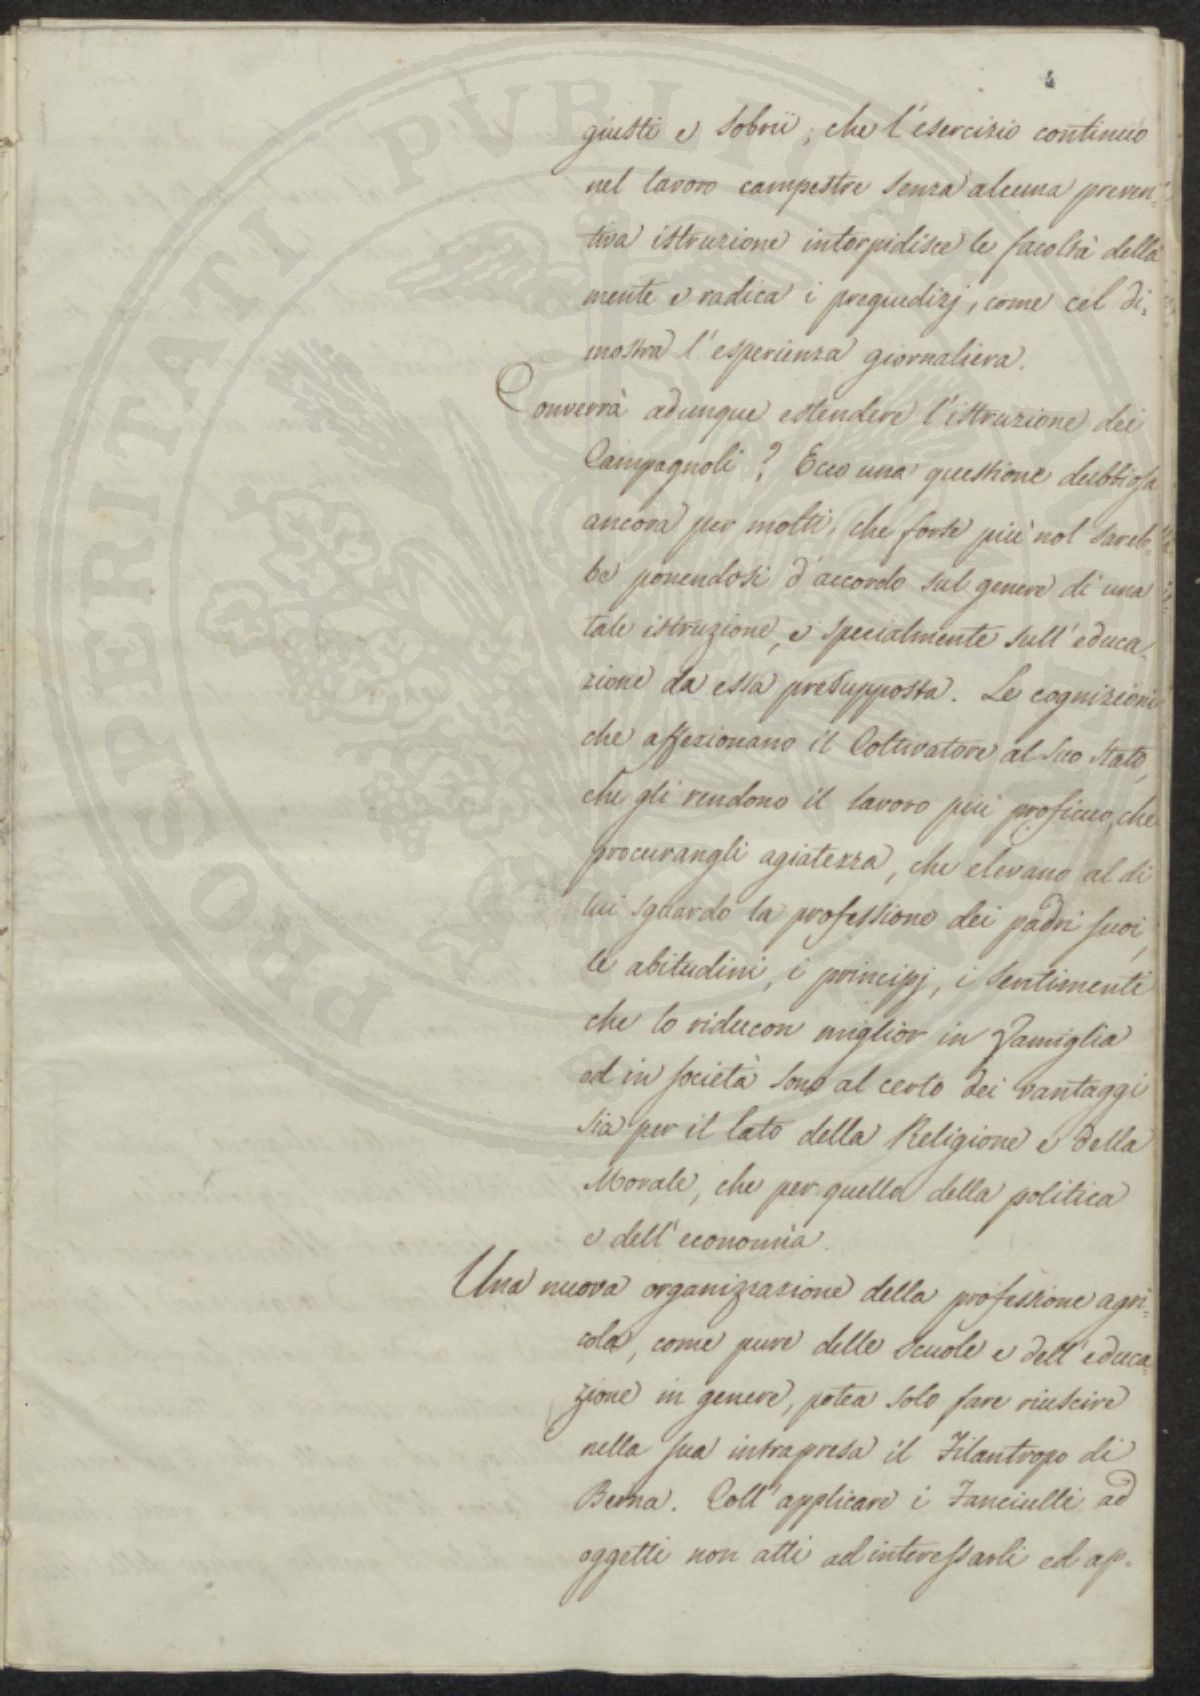 giusti e sobrii, che l'esercizio continuo
nel lavoro campestre senza alcuna preven-
tiva istruzione intorpidisce le facoltà della
mente e radica i pregiudizj, come cel di-
mostra l'esperienza giornaliera.
Converrà adunque estendere l'istruzione dei
Campagnoli? Ecco una questione dubbiosa
ancora per molti, che forse più nol sareb-
be ponendosi d'accordo sul genere di una
tale istruzione, e specialmente sull'educa-
zione da essa presupposta. Le cognizioni
che affezionano il Coltivatore al suo stato,
che gli rendono il lavoro più proficuo, che
procurangli agiatezza, che elevano al di
lui sguardo la professione dei padri suoi,
le abitudini, i principj, i sentimenti
che lo riducon miglior in Famiglia
ed in società sono al certo dei vantaggi
sia per il lato della Religione e della
Morale, che per quello della politica
e dell'economia.
Una nuova organizzazione della professione agri-
cola, come pure delle scuole e dell'educa-
zione in genere, potea solo fare riuscire
nella sua intrapresa il Filantropo di
Berna. Coll'applicare i Fanciulli ad
oggetti non atti ad interessarli ed ap-
PROSPERITATI PVBLICAE